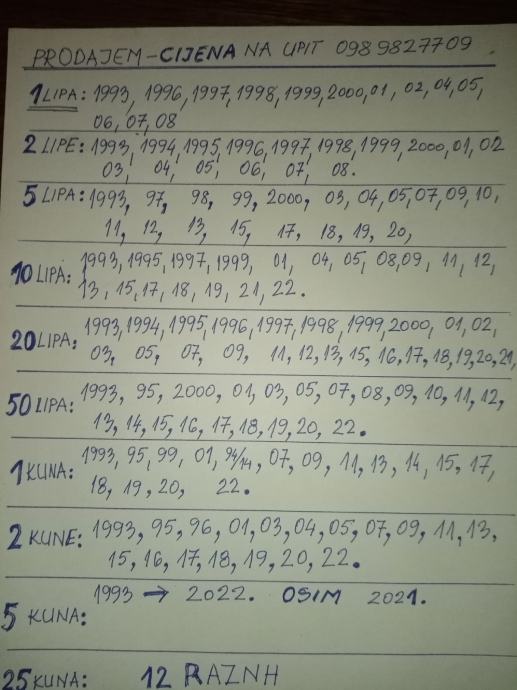 PRODAJEM - CIJENA NA UPIT 098 9827709
1 LIPA: 1993, 1996, 1997, 1998, 1999, 2000, 01, 02, 04, 05,
06, 07, 08
2 LIPE: 1993, 1994, 1995, 1996, 1997, 1998, 1999, 2000, 01, 02
03, 04, 05, 06, 07, 08.
5 LIPA: 1993, 97, 98, 99, 2000, 03, 04, 05, 07, 09, 10,
11, 12, 13, 15, 17, 18, 19, 20,
10 LIPA: 1993, 1995, 1997, 1999, 01, 04, 05, 08, 09, 11, 12,
13, 15, 17, 18, 19, 21, 22.
20 LIPA: 1993, 1994, 1995, 1996, 1997, 1998, 1999, 2000, 01, 02,
03, 05, 07, 09, 11, 12, 13, 15, 16, 17, 18, 19, 20, 21,
50 LIPA: 1993, 95, 2000, 01, 03, 05, 07, 08, 09, 10, 11, 12,
13, 14, 15, 16, 17, 18, 19, 20, 22.
1 KUNA: 1993, 95, 99, 01, 94/14, 07, 09, 11, 13, 14, 15, 17,
18, 19, 20, 22.
2 KUNE: 1993, 95, 96, 01, 03, 04, 05, 07, 09, 11, 13,
15, 16, 17, 18, 19, 20, 22.
1993 → 2022. OSIM 2021.
5 KUNA:
25 KUNA: 12 RAZNH